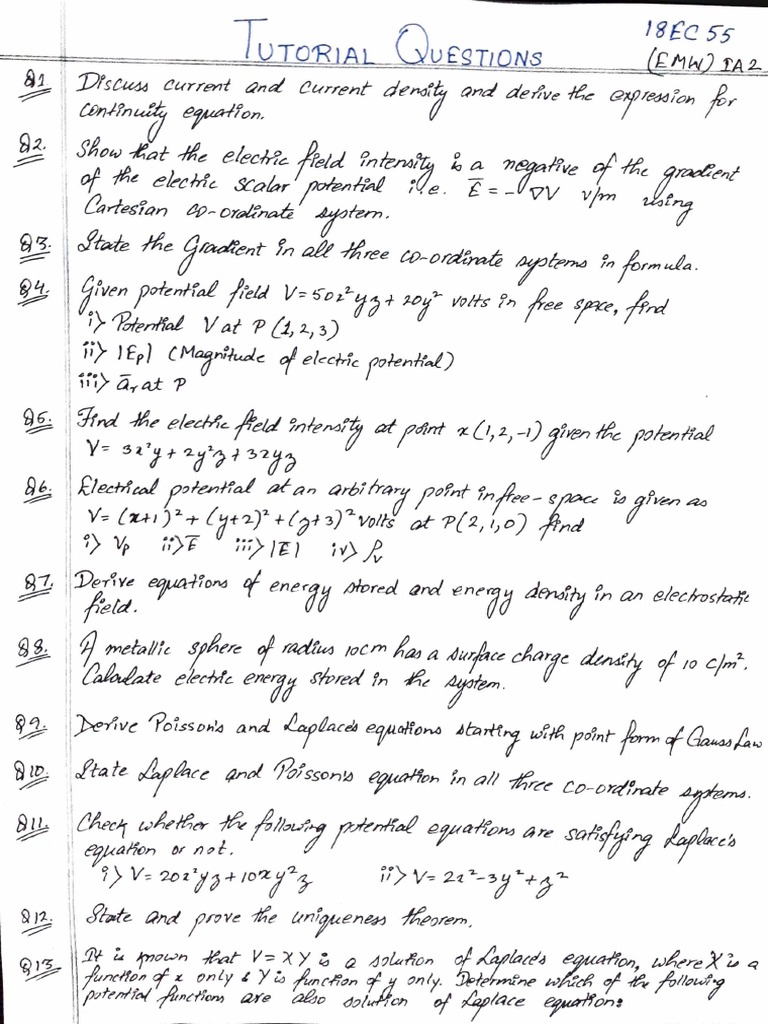 TUTORIAL QUESTIONS
18EC55
(EMW) IA2
Q1 Discuss current and current density and derive the expression for
continuity equation.
Q2. Show that the electric field intensity is a negative of the gradient
of the electric scalar potential i.e. E̅ = -∇V v/m using
Cartesian co-ordinate system.
Q3. State the Gradient in all three co-ordinate systems in formula.
Q4. Given potential field V = 50x²yz + 20y² volts in free space, find
i> Potential V at P (1,2,3)
ii> |Ep| (Magnitude of electric potential)
iii> a̅r at P
Q5. Find the electric field intensity at point x(1,2,-1) given the potential
V = 3x²y + 2y²z + 3xyz
Q6. Electrical potential at an arbitrary point in free-space is given as
V = (x+1)² + (y+2)² + (z+3)² volts at P(2,1,0) find
i> Vp ii> E̅ iii> |E̅| iv> ρv
Q7. Derive equations of energy stored and energy density in an electrostatic
field.
Q8. A metallic sphere of radius 10cm has a surface charge density of 10 c/m².
Calculate electric energy stored in the system.
Q9. Derive Poisson's and Laplace's equations starting with point form of Gauss Law
Q10. State Laplace and Poisson's equation in all three co-ordinate systems.
Q11. Check whether the following potential equations are satisfying Laplace's
equation or not.
i> V = 20x²yz + 10xy²z ii> V = 2x² - 3y² + z²
Q12. State and prove the uniqueness theorem.
Q13. It is known that V = XY is a solution of Laplace's equation, where X is a
function of x only & Y is function of y only. Determine which of the following
potential functions are also solution of Laplace equation: